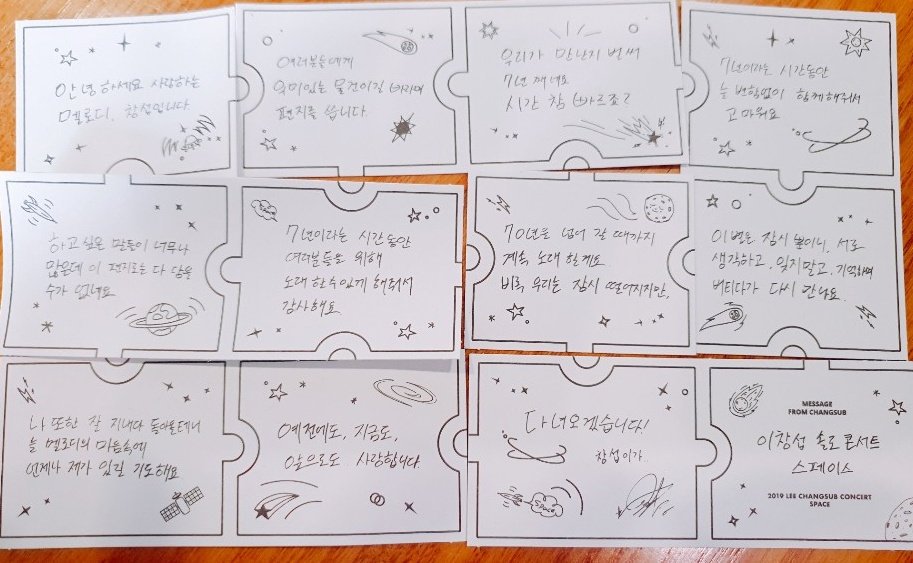 안녕하세요 사랑하는
멜로디, 창섭입니다
여러분들에게
의미있는 물건이길 바라며
편지를 씁니다.
우리가 만난지 벌써
7년 째네요
시간 참 빠르죠?
7년이라는 시간동안
늘 변함없이 함께해줘서
고마워요
하고 싶은 말들이 너무나
많은데 이 편지로는 다 담을
수가 없네요
7년이라는 시간동안
여러분들을 위해
노래 할 수 있게 해줘서
감사해요
70년을 넘어 갈 때까지
계속 노래 할게요
비록 우리는 잠시 떨어지지만,
이별은 잠시 뿐이니, 서로
생각하고, 잊지말고, 기억하며
버티다가 다시 만나요.
나 또한 잘 지내다 돌아올테니
늘 멜로디의 마음속에
언제나 제가 있길 기도해요
예전에도, 지금도,
앞으로도 사랑합니다.
다녀오겠습니다!
창섭이가.
SPACE
MESSAGE
FROM CHANGSUB
이창섭 솔로 콘서트
스페이스
2019 LEE CHANGSUB CONCERT
SPACE